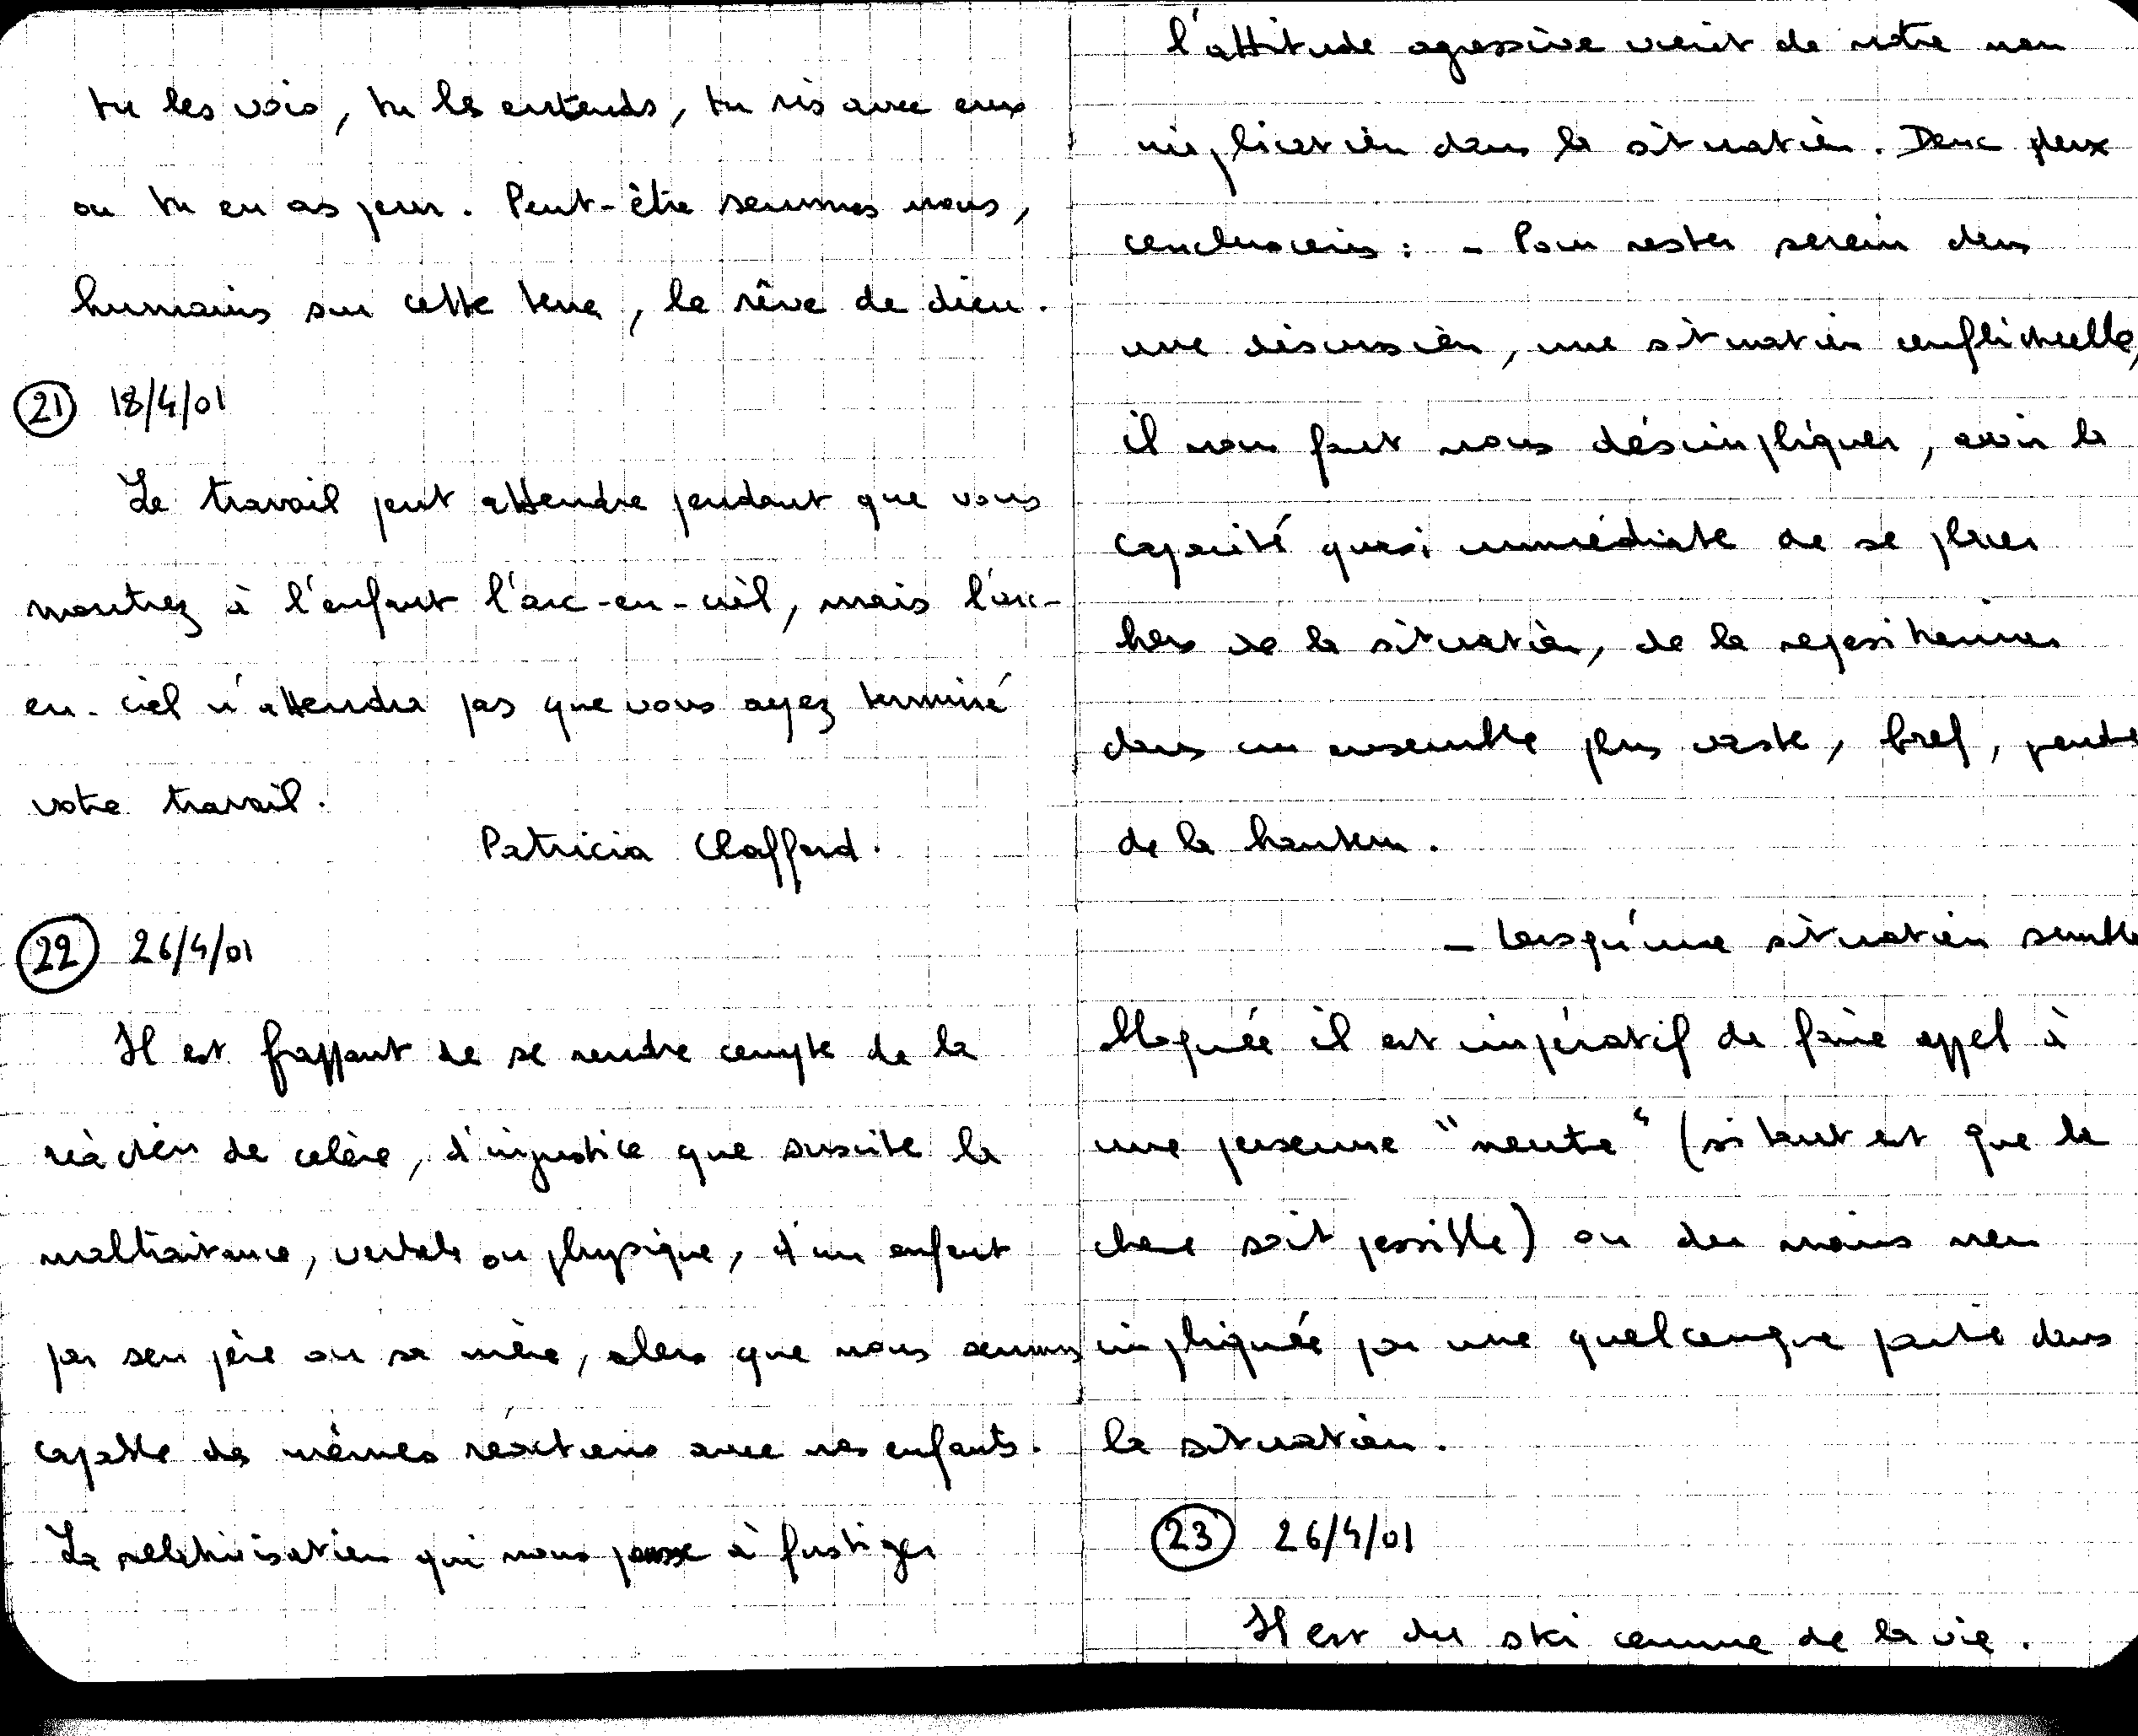 tu les vois, tu les entends, tu ris avec eux
ou tu en as peur. Peut-être sommes nous,
humains sur cette terre, le rêve de dieu.
21 18/4/01
Le travail peut attendre pendant que vous
montrez à l'enfant l'arc-en-ciel, mais l'arc-
en-ciel n'attendra pas que vous ayez terminé
votre travail.
Patricia Clafford.
22 26/4/01
Il est frappant de se rendre compte de la
réaction de colère, d'injustice que suscite la
maltraitance, verbale ou physique, d'un enfant
par son père ou sa mère, alors que nous sommes
capable des mêmes réactions avec nos enfants.
La relativisation qui nous pousse à fustiger
l'attitude agressive vient de notre non
implication dans la situation. Donc deux
conclusions : - Pour rester serein dans
une discussion, une situation conflictuelle,
il nous faut nous désimpliquer, avoir la
capacité quasi immédiate de se placer
hors de la situation, de la repositionner
dans un ensemble plus vaste, bref, prendre
de la hauteur.
- Lorsqu'une situation semble
bloquée il est impératif de faire appel à
une personne "neutre" (si tant est que la
chose soit possible) ou du moins non
impliquée par une quelconque partie dans
la situation.
23 26/4/01
Il est du ski comme de la vie.